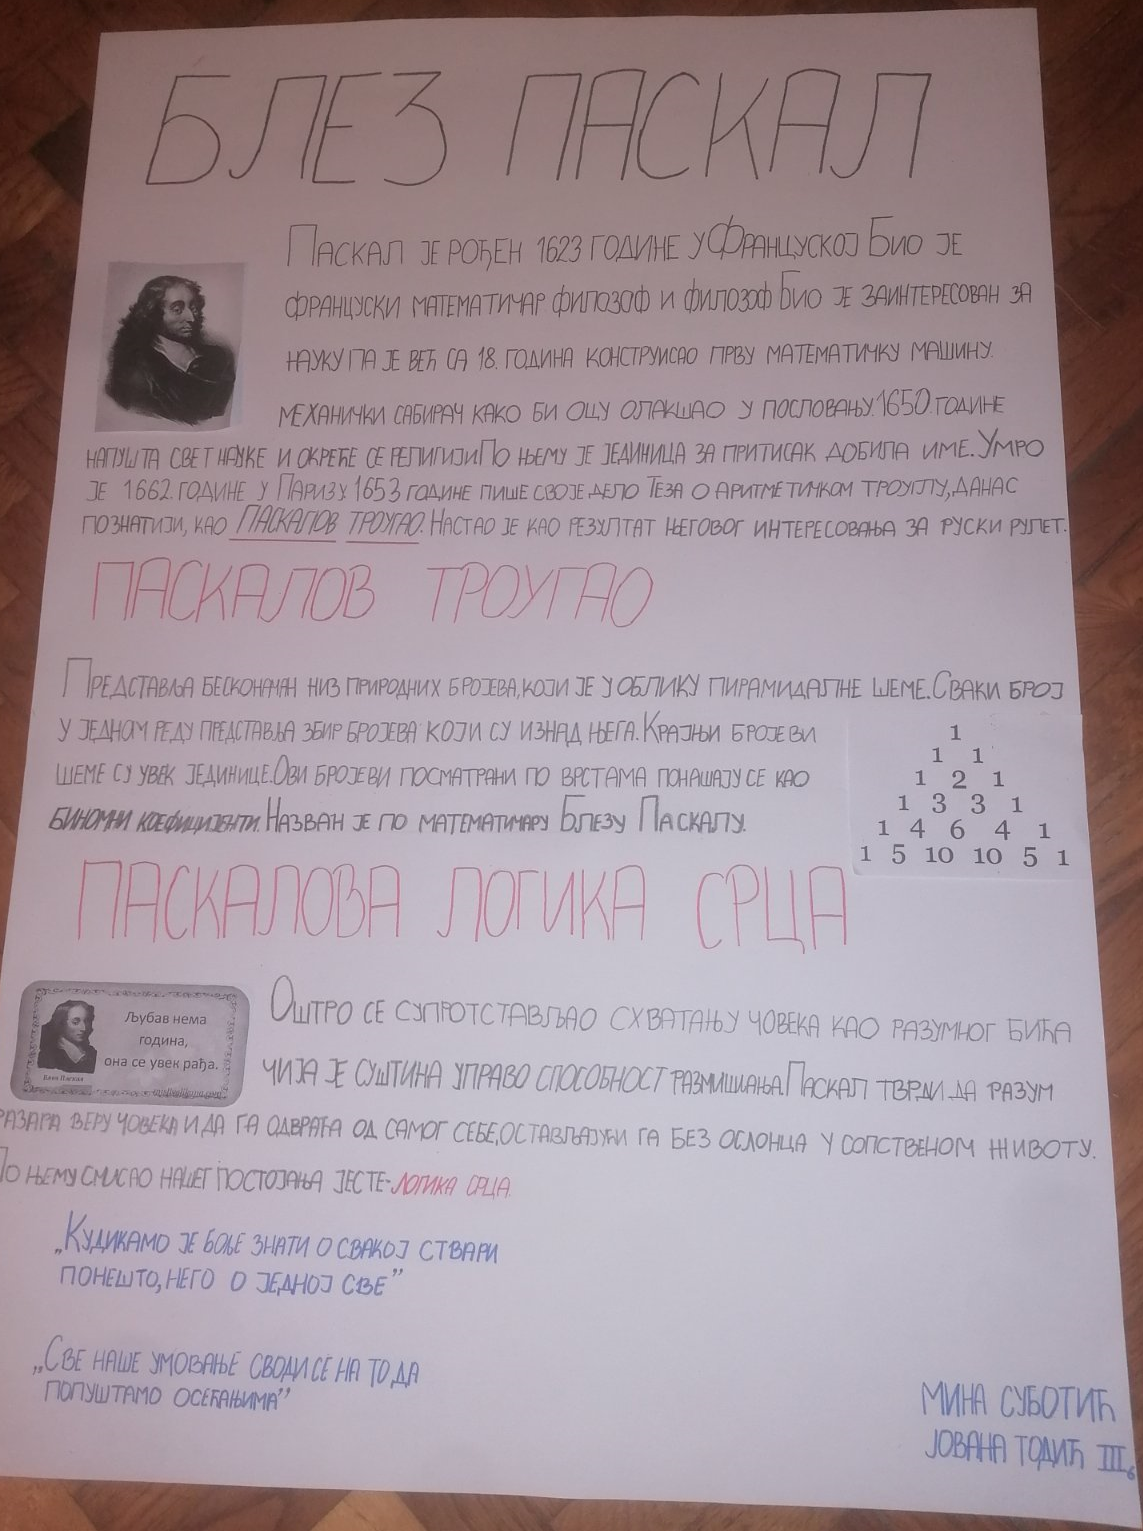 БЛЕЗ ПАСКАЛ
ПАСКАЛ ЈЕ РОЂЕН 1623 ГОДИНЕ У ФРАНЦУСКОЈ БИО ЈЕ
ФРАНЦУСКИ МАТЕМАТИЧАР ФИЛОЗОФ И ФИЛОЗОФ БИО ЈЕ ЗАИНТЕРЕСОВАН ЗА
НАУКУ ПА ЈЕ ВЕЋ СА 18. ГОДИНА КОНСТРУИСАО ПРВУ МАТЕМАТИЧКУ МАШИНУ.
МЕХАНИЧКИ САБИРАЧ КАКО БИ ОЦУ ОЛАКШАО У ПОСЛОВАЊУ. 1650. ГОДИНЕ
НАПУШТА СВЕТ НАУКЕ И ОКРЕЋЕ СЕ РЕЛИГИЈИ ПО ЊЕМУ ЈЕ ЈЕДИНИЦА ЗА ПРИТИСАК ДОБИЛА ИМЕ. УМРО
ЈЕ 1662. ГОДИНЕ У ПАРИЗУ. 1653 ГОДИНЕ ПИШЕ СВОЈЕ ДЕЛО ТЕЗА О АРИТМЕТИЧКОМ ТРОУГЛУ, ДАНАС
ПОЗНАТИЈИ, КАО ПАСКАЛОВ ТРОУГАО. НАСТАО ЈЕ КАО РЕЗУЛТАТ ЊЕГОВОГ ИНТЕРЕСОВАЊА ЗА РУСКИ РУЛЕТ.
ПАСКАЛОВ ТРОУГАО
ПРЕДСТАВЉА БЕСКОНАЧАН НИЗ ПРИРОДНИХ БРОЈЕВА, КОЈИ ЈЕ У ОБЛИКУ ПИРАМИДАЛНЕ ШЕМЕ. СВАКИ БРОЈ
У ЈЕДНОМ РЕДУ ПРЕДСТАВЉА ЗБИР БРОЈЕВА КОЈИ СУ ИЗНАД ЊЕГА. КРАЈЊИ БРОЈЕВИ
ШЕМЕ СУ УВЕК ЈЕДИНИЦЕ. ОВИ БРОЈЕВИ ПОСМАТРАНИ ПО ВРСТАМА ПОНАШАЈУ СЕ КАО
БИНОМНИ КОЕФИЦИЈЕНТИ. НАЗВАН ЈЕ ПО МАТЕМАТИЧАРУ БЛЕЗУ ПАСКАЛУ.
1
1 1
1 2 1
1 3 3 1
1 4 6 4 1
1 5 10 10 5 1
ПАСКАЛОВА ЛОГИКА СРЦА
Љубав нема
година,
она се увек рађа.
Блез Паскал
ОШТРО СЕ СУПРОТСТАВЉАО СХВАТАЊУ ЧОВЕКА КАО РАЗУМНОГ БИЋА
ЧИЈА ЈЕ СУШТИНА УПРАВО СПОСОБНОСТ РАЗМИШЉАЊА. ПАСКАЛ ТВРДИ ДА РАЗУМ
РАЗАРА ВЕРУ ЧОВЕКА И ДА ГА ОДВРАЋА ОД САМОГ СЕБЕ, ОСТАВЉАЈУЋИ ГА БЕЗ ОСЛОНЦА У СОПСТВЕНОМ ЖИВОТУ.
ПО ЊЕМУ СМИСАО НАШЕГ ПОСТОЈАЊА ЈЕСТЕ-ЛОГИКА СРЦА.
„КУДИКАМО ЈЕ БОЉЕ ЗНАТИ О СВАКОЈ СТВАРИ
ПОНЕШТО, НЕГО О ЈЕДНОЈ СВЕ”
„СВЕ НАШЕ УМОВАЊЕ СВОДИ СЕ НА ТО ДА
ПОПУШТАМО ОСЕЋАЊИМА”
МИНА СУБОТИЋ
ЈОВАНА ТОДИЋ III6